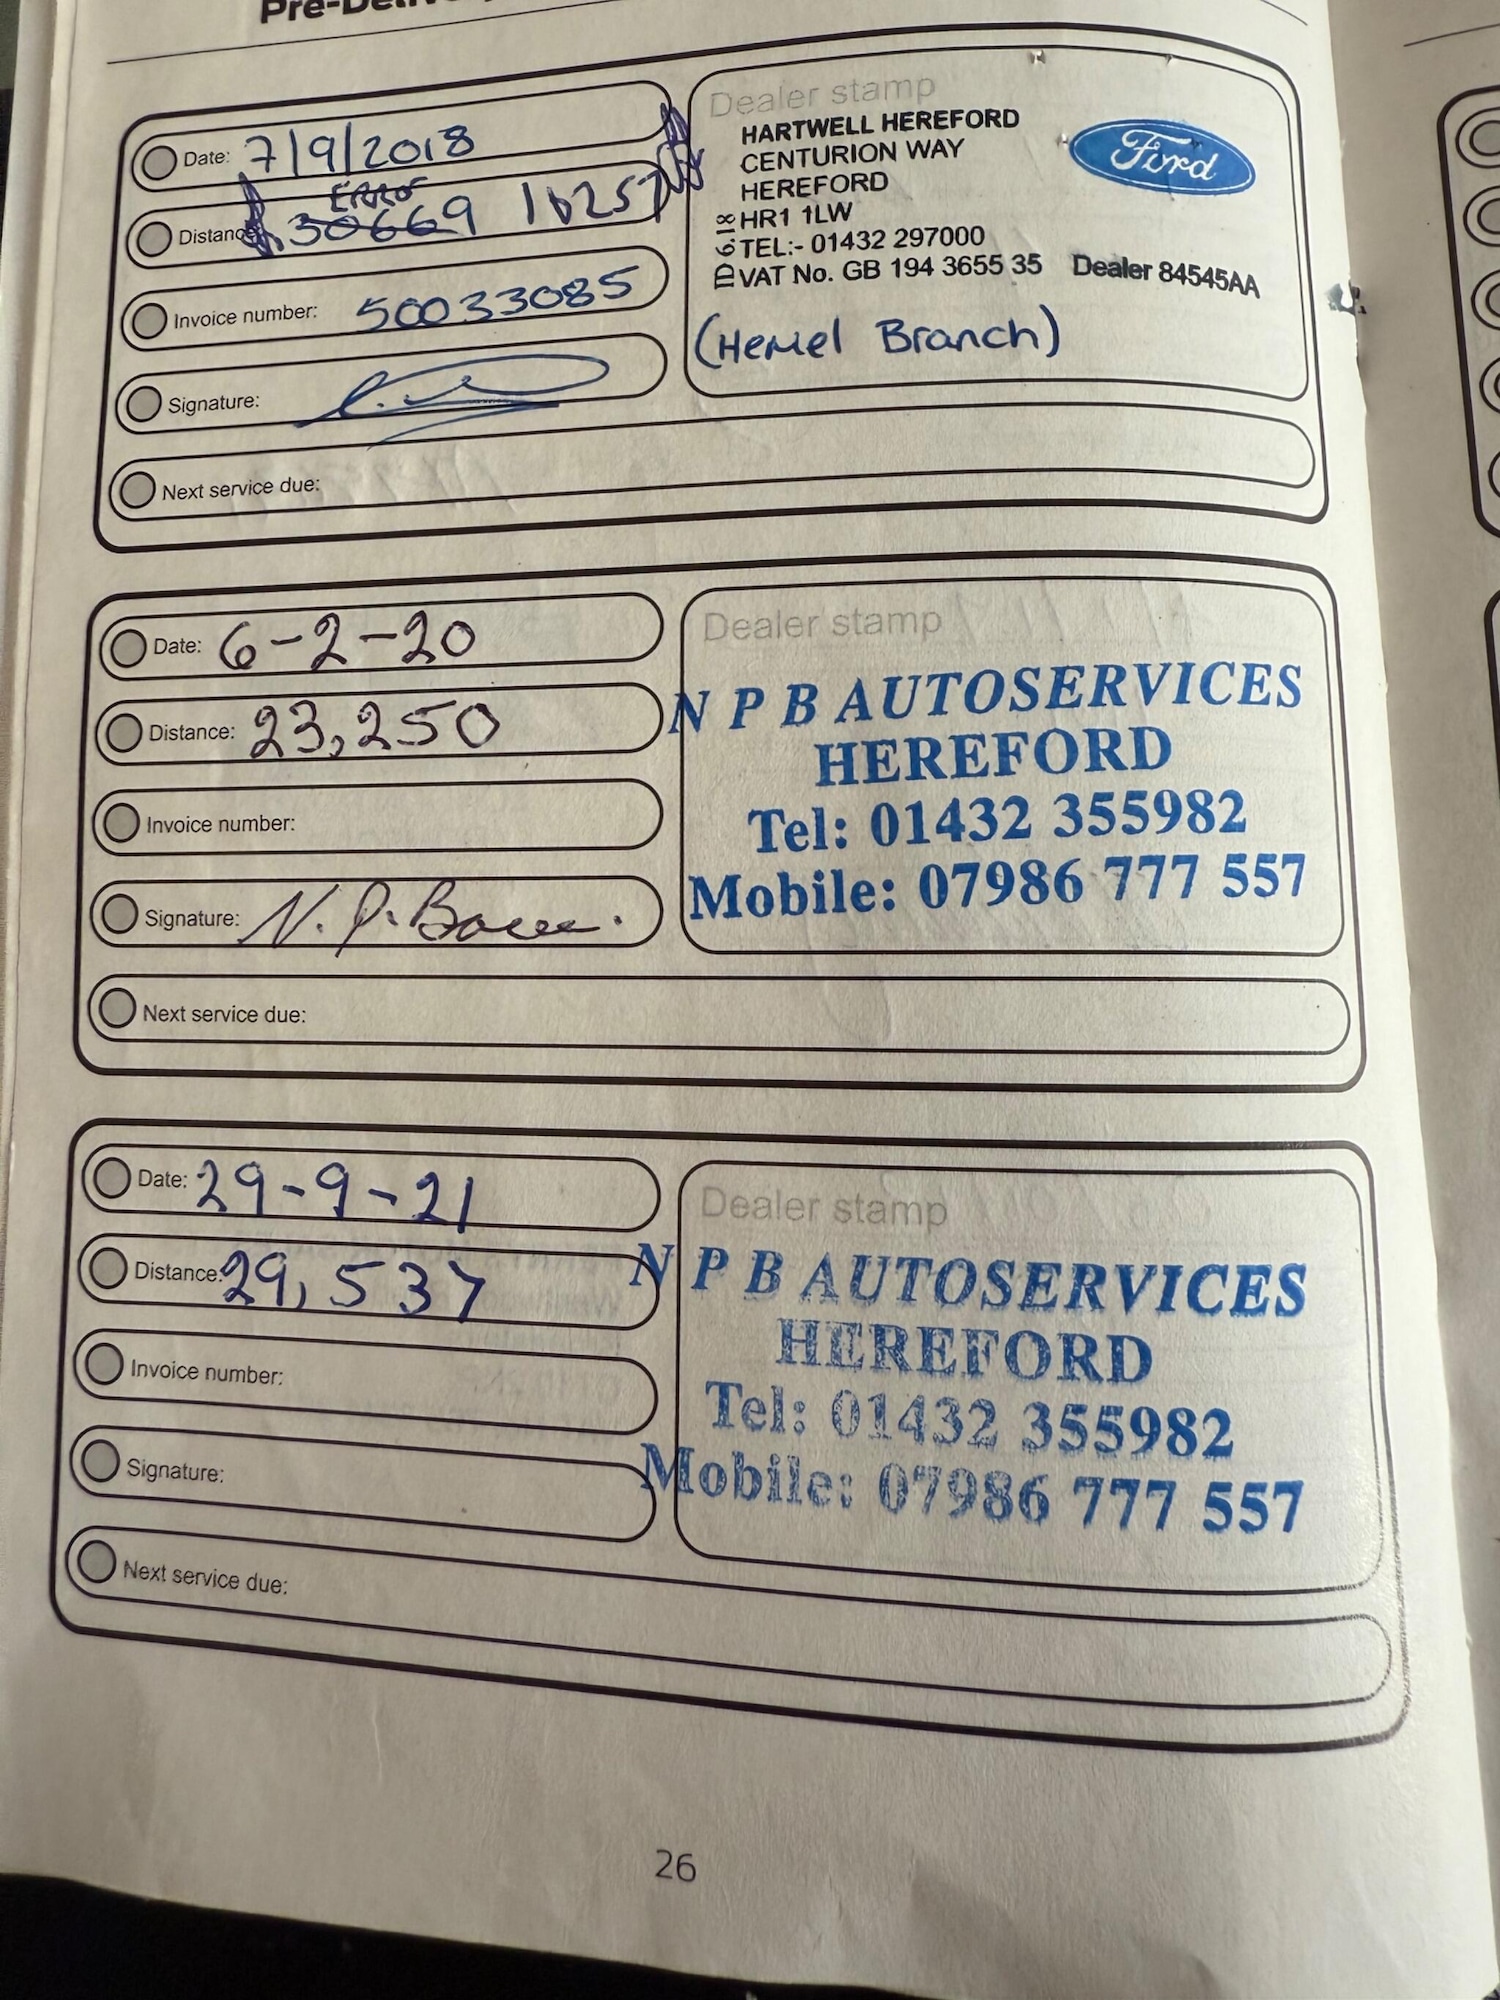 Date: 7/9/2018
ERROR
Distance: 30669 16257
Invoice number: 50033085
Signature:
Next service due:
Dealer stamp
HARTWELL HEREFORD
CENTURION WAY
HEREFORD
HR1 1LW
TEL:- 01432 297000
VAT No. GB 194 3655 35 Dealer 84545AA
Ford
(Hemel Branch)
Date: 6-2-20
Distance: 23,250
Invoice number:
Signature: N. P.
Next service due:
Dealer stamp
N P B AUTOSERVICES
HEREFORD
Tel: 01432 355982
Mobile: 07986 777 557
Date: 29-9-21
Distance: 29,537
Invoice number:
Signature:
Next service due:
Dealer stamp
N P B AUTOSERVICES
HEREFORD
Tel: 01432 355982
Mobile: 07986 777 557
26